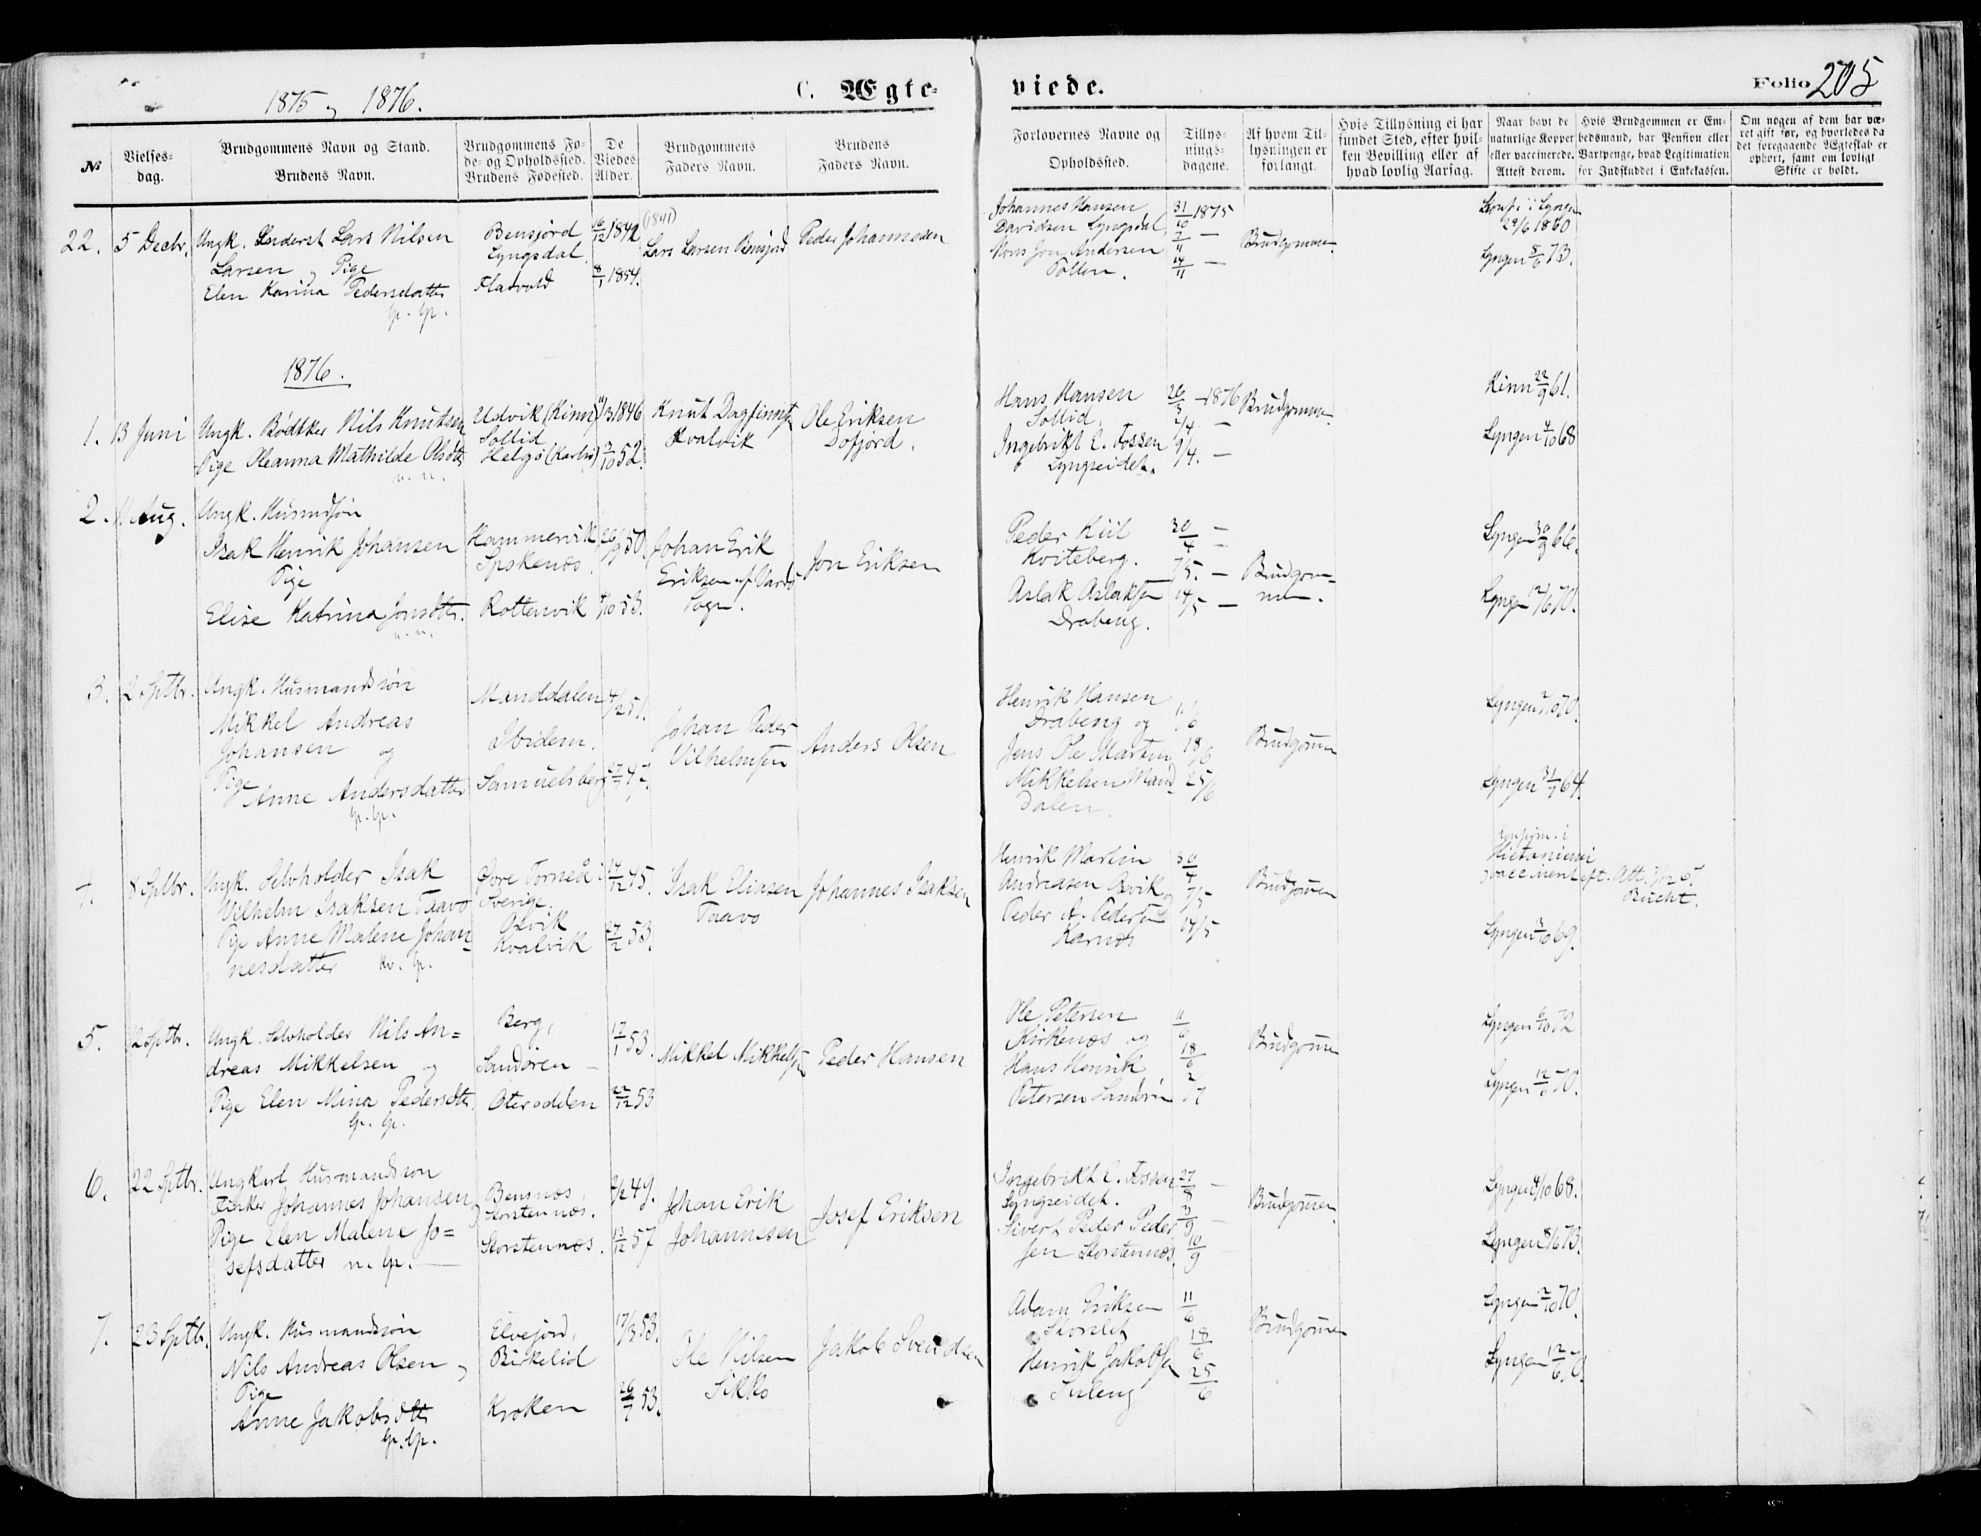 1875 og 1876.
C. Ægte-
viede.
Folio 205
No
Vielses-
dag.
Brudgommens Navn og Stand.
Brudens Navn.
Brudgommens Fø-
de- og Opholdssted.
Brudens Fødested.
De
Viedes
Alder.
Brudgommens
Faders Navn.
Brudens
Faders Navn.
Forlovernes Navne og
Opholdssted.
Tillys-
nings-
dagene.
Af hvem Til-
lysningen er
forlangt.
Hvis Tillysning ei har
fundet Sted, efter hvil-
ken Bevilling eller af
hvad lovlig Aarsag.
Naar havt de
naturlige Kopper
eller vaccinerede.
Attest derom.
Hvis Brudgommen er Em-
bedsmand, har Pension eller
Vartpenge, hvad Legitimation
for Indskuddet i Enkekassen.
Om nogen af dem har væ-
ret gift før, og hvorledes da
det foregaaende Ægteskab er
ophørt, samt om lovligt
Skifte er holdt.
22. 5 Decbr.
Ungk. Inderst Lars Nilsen
Larsen og Pige
Elen Karina Pedersdatter
Bensjord
Lyngsdal
8/1 1854.
(1841)
16/12 1842
Lars Larsen Bensjord
Peder Johannesen
Johannes Hansen
Davidsen Lyngsdal
Mons Jon Andersen
Pollen.
31/10 1875
7/11 —
14/11 —
Brudgommen
Lyngen
1860
Lyngen 8/6 73.
1876.
1. 13 Juni
Ungk. Bødtker Nils Knutsen
Pige Oleanna Mathilde Olsdtr
Udvik (Kinn)
Sollid
Helgø (Karlsø)
1846
2/10 52.
Knut Dagfinns
Kvalvik
Ole Eriksen
Dofjord.
Hans Hansen
Sollid.
Ingebrikt E. Fossen
Lyngseidet.
26/3 — 1876
2/4 —
9/4. —
Brudgommen
Kinn 22/9 61.
Lyngen 4/10 68
2. 11 Aug.
Ungk. Husmdsøn
Isak Henrik Johansen
Pige
Elise Katrina Jonsdtr.
Hammervik
Spokenæs.
Rottenvik
26/9 50.
4/10 53.
Johan Erik
Eriksen af Vardø
Sogn.
Jon Eriksen
Peder Kiil
Kviteberg.
Aslak Aslaksen
Drabeng.
30/4 —
7/5. —
14/5 —
Brudgom-
men.
Lyngen 30/9 66.
Lyngen 12/6 70.
3. 2 Sptbr.
Ungk. Husmandssøn
Mikkel Andreas
Johansen og
Pige
Anne Andersdatter
Manddalen
Ibidem.
Samuelsberg
4/2 51.
27/7 47.
Johan Peder
Vilhelmsen
Anders Olsen
Henrik Hansen
Drabeng og
Jens Ole Martin
Mikkelsen Mand-
dalen.
11/6
18/6
25/6
Brudgommen
Lyngen 2/10 70.
Lyngen 31/7 64.
4. 8 Sptbr.
Ungk. Selvholder Isak
Vilhelm Isaksen Taavo
Pige Anne Malene Johan-
nesdatter
Øvre Torneå i
Sverige.
Kvalvik
14/12 45.
27/12 53.
Isak Eliasen
Taavo
Johannes Isaksen
Henrik Martin
Andreasen
Peder A. Pedersen
Karnæs
30/4
7/5
14/5
Brudgommen
Hietaniemi
Lyngen 3/10 69.
5. 12 Sptbr.
Ungk. Selvholder Nils An=
dreas Mikkelsen og
Pige Elen Mina Pedersdtr.
Berg,
Sandøren —
Oterodden
17/1 53.
22/12 53
Mikkel Mikkelsen
Peder Hansen
Ole Petersen
Kirkenæs og
Hans Henrik
Petersen Sandøren
11/6
18/6
2/7
Brudgommen
Lyngen 6/10 72
Lyngen 12/6 70.
6. 22 Sptbr.
Ungkarl Husmandssøn
Fisker Johannes Johansen
Pige Elen Malene Jo=
sefsdatter
Bensnæs,
Storstennæs.
Storstennæs.
2/2 49.
13/12 57
Johan Erik
Johannesen
Josef Eriksen
Ingebrikt E. Fossen
Lyngseidet.
Sivert Peder Peder
sen Storstennæs.
27/8 —
3/9 —
10/9
Brudgommen
Lyngen 4/10 68.
Lyngen 8/6 73.
7. 23 Sptb.
Ungk. Husmandssøn
Nils Andreas Olsen og
Pige
Anne Jakobsdtr
Elvejord,
Birkelid
Kroken
17/3 53.
26/7 53.
Ole Nilsen
Sikko
Jakob Svendsen
Adam Eriksen
Storslet
Henrik Jakobsen
11/6
18/6
25/6
Brudgommen
Lyngen 2/10 70.
Lyngen 12/6 70.